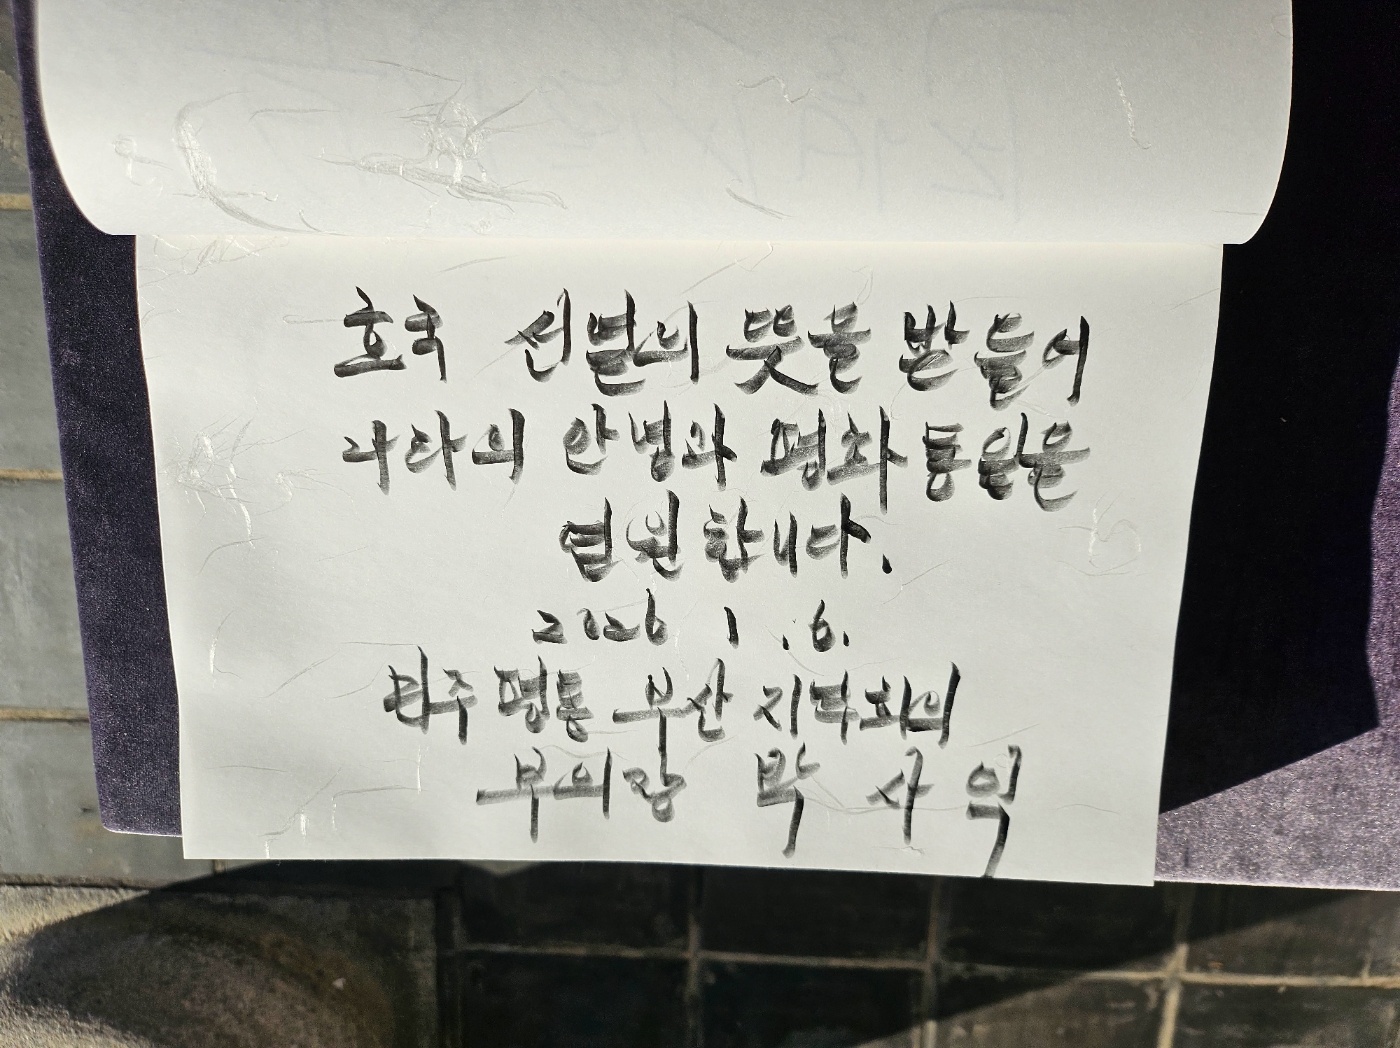 호국 선열의 뜻을 받들어
나라의 안녕과 평화 통일을
염원합니다.
2026 1.6.
민주평통 부산 지역회의
부의장 박 사 익